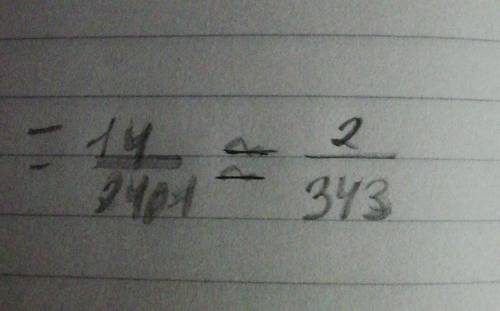 = 14/2401 ≅ 2/343